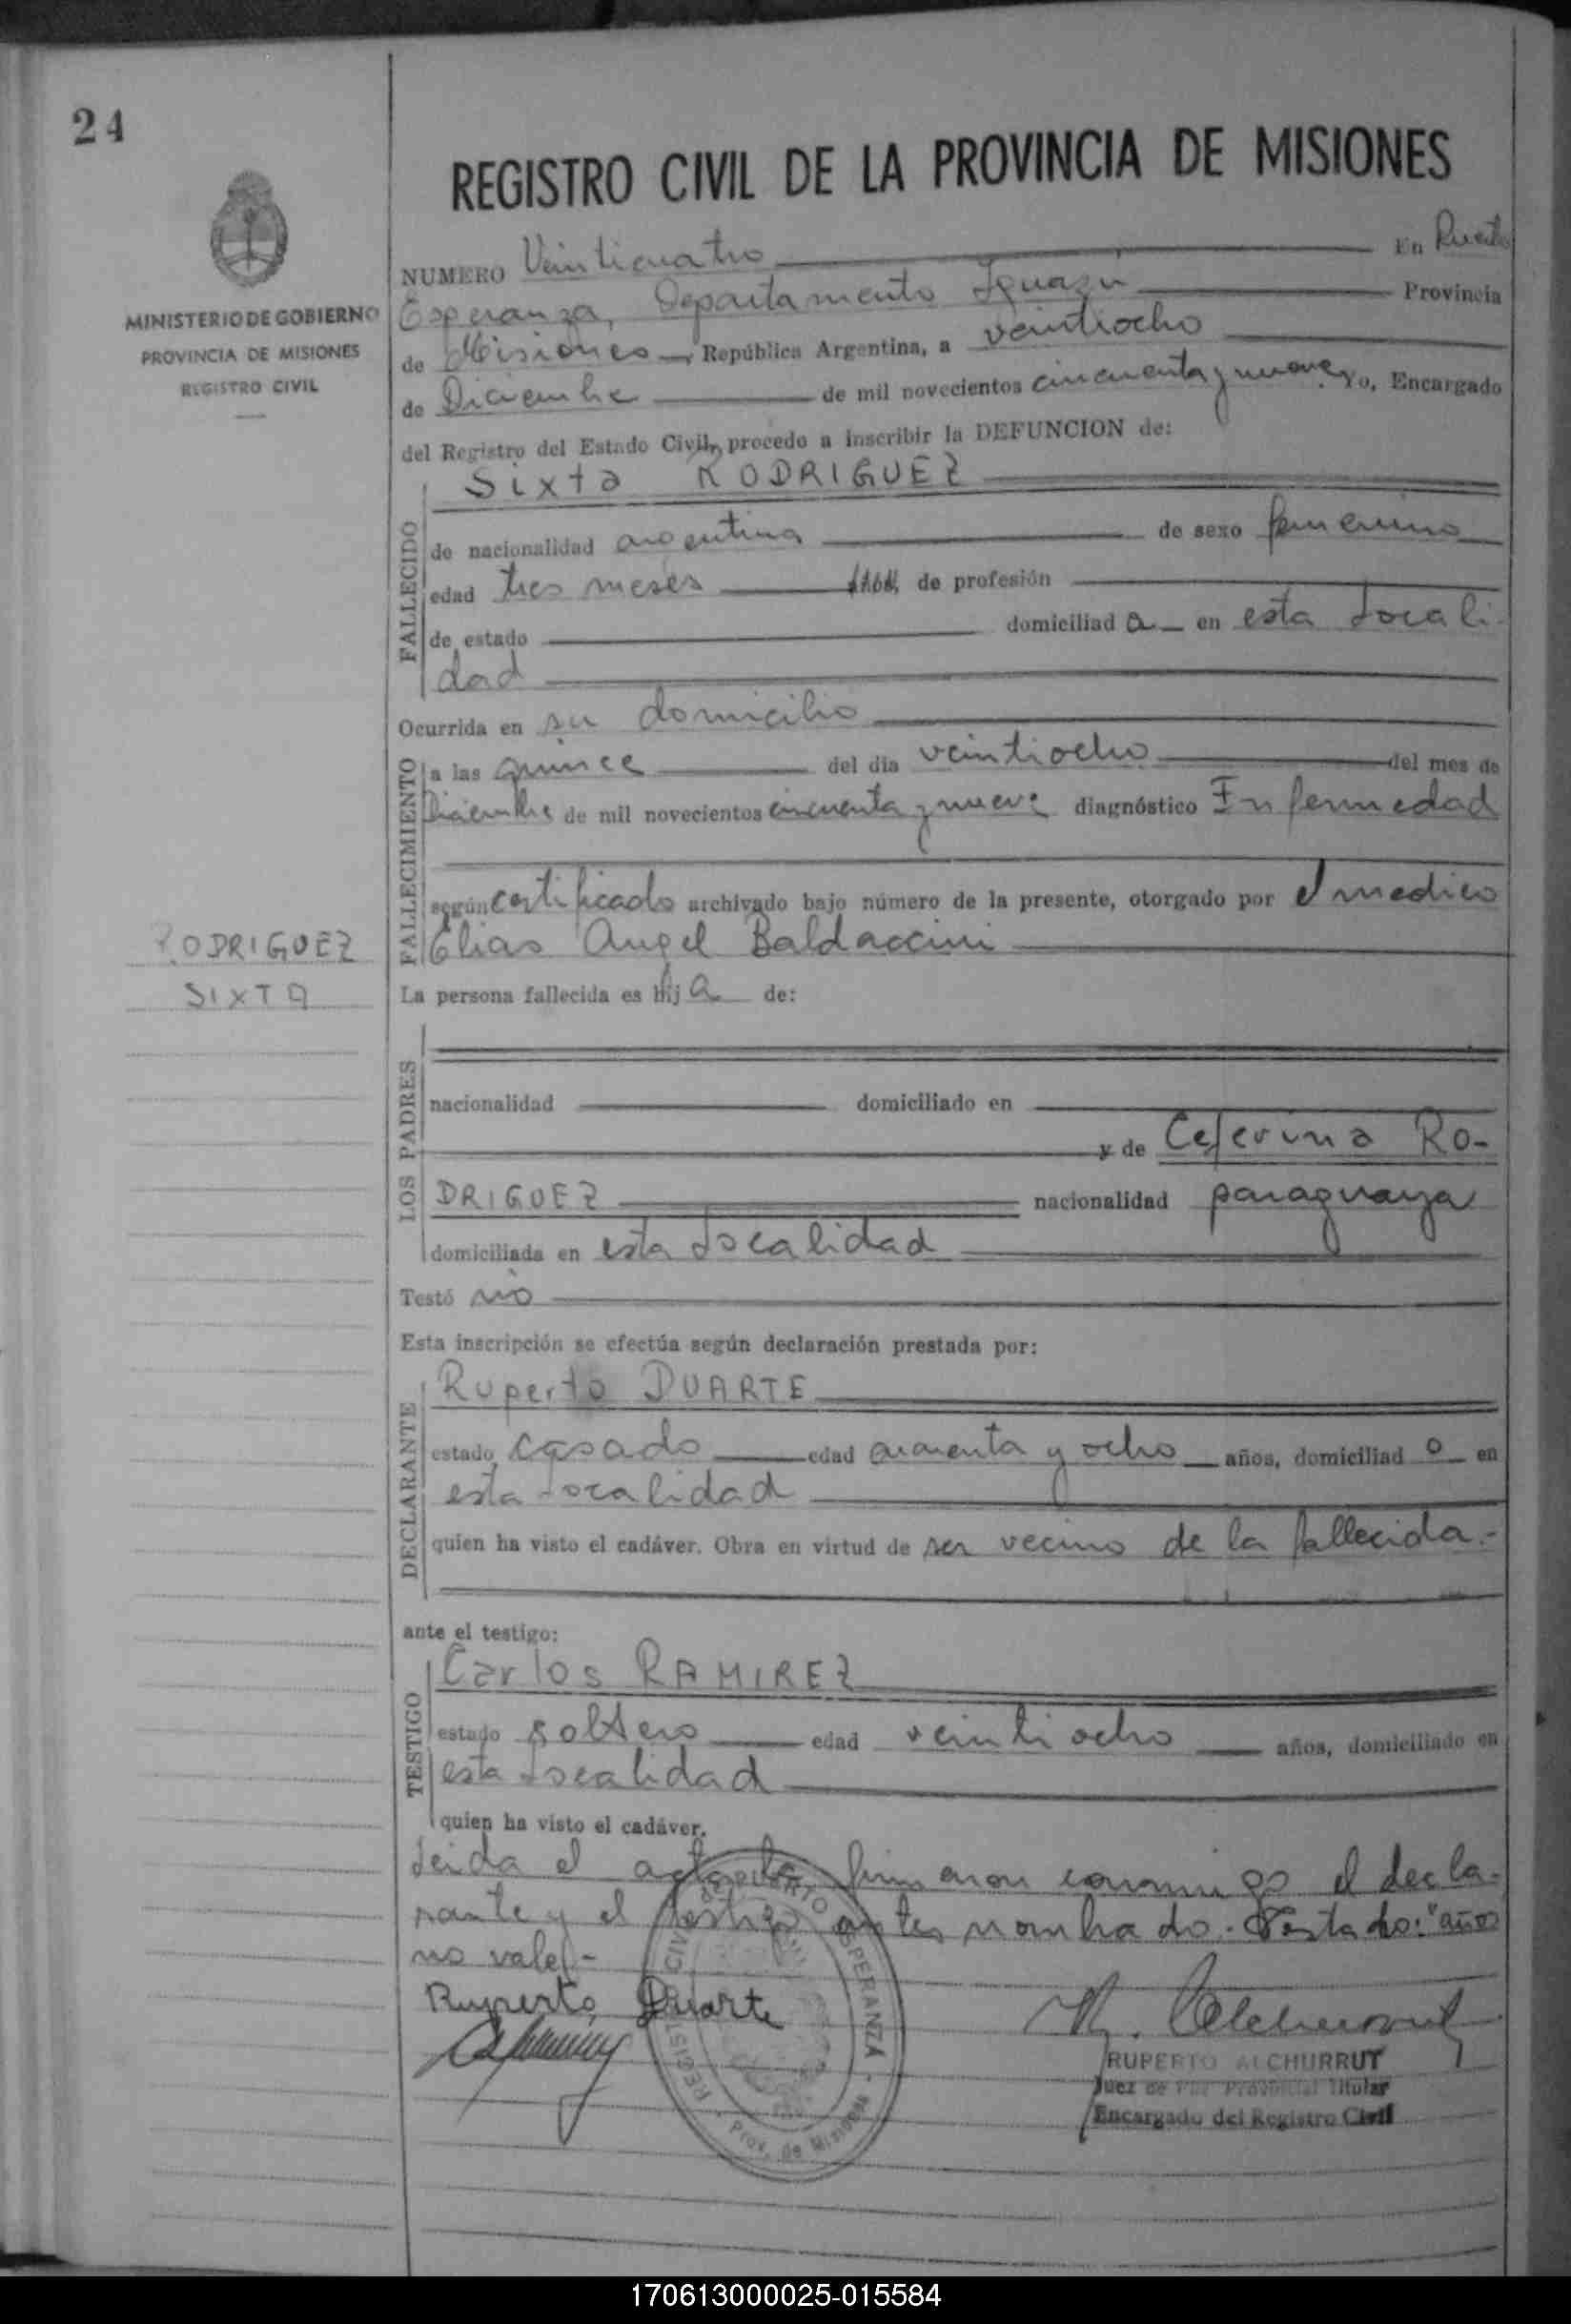 24
MINISTERIO DE GOBIERNO
PROVINCIA DE MISIONES
REGISTRO CIVIL
REGISTRO CIVIL DE LA PROVINCIA DE MISIONES
NUMERO Veinticuatro En Puerto
Esperanza, Departamento Iguazú Provincia
de Misiones, República Argentina, a veintiocho
de Diciembre de mil novecientos cincuenta y nueve, Yo, Encargado
del Registro del Estado Civil, procedo a inscribir la DEFUNCION de:
FALLECIDO
Sixta RODRIGUEZ
de nacionalidad argentina de sexo femenino
edad tres meses años, de profesión
de estado domiciliad a en esta locali-
dad
Ocurrida en su domicilio
FALLECIMIENTO
a las quince del dia veintiocho del mes de
Diciembre de mil novecientos cincuenta y nueve diagnóstico Enfermedad
según certificado archivado bajo número de la presente, otorgado por el medico
Elias Angel Baldaccini
RODRIGUEZ
SIXTA
La persona fallecida es hij a de:
LOS PADRES
nacionalidad domiciliado en
y de Ceferina RO-
DRIGUEZ nacionalidad paraguaya
domiciliada en esta localidad
Testó no
Esta inscripción se efectúa según declaración prestada por:
DECLARANTE
Ruperto DUARTE
estado casado edad cuarenta y ocho años, domiciliad o en
esta localidad
quien ha visto el cadáver. Obra en virtud de ser vecino de la fallecida.-
ante el testigo:
TESTIGO
Carlos RAMIREZ
estado soltero edad veintiocho años, domiciliado en
esta localidad
quien ha visto el cadáver.
Leida el acta la firmaron conmigo el decla-
rante y el testigo antes nombrado.- Testado: "años
no vale.-
Ruperto Duarte
REGISTRO CIVIL DE PUERTO ESPERANZA - Prov. de Misiones
RUPERTO ALCHURRUT
Juez de Paz Provincial Titular
Encargado del Registro Civil
170613000025-015584